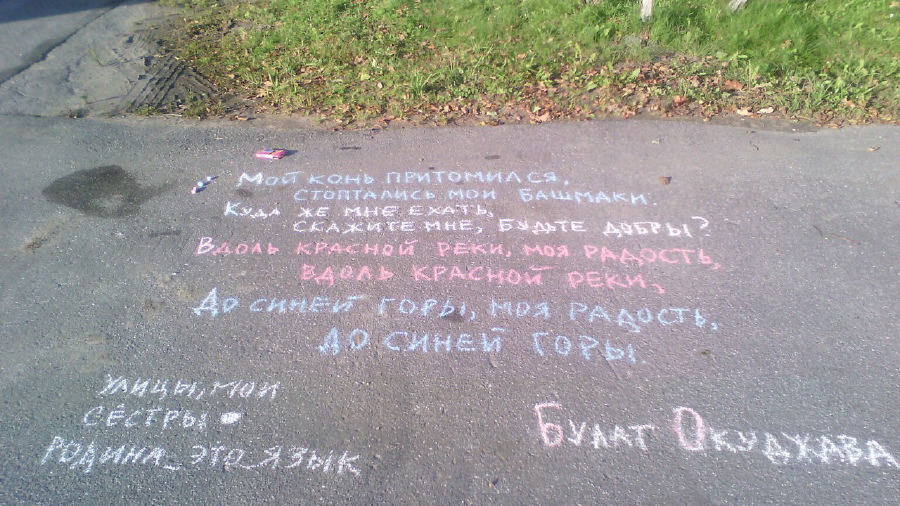 Мой конь притомился,
стоптались мои башмаки.
Куда же мне ехать,
скажите мне, будьте добры?
Вдоль красной реки, моя радость,
вдоль красной реки,
До синей горы, моя радость,
до синей горы.
улицы, мои
сёстры
родина_это_язык
Булат Окуджава